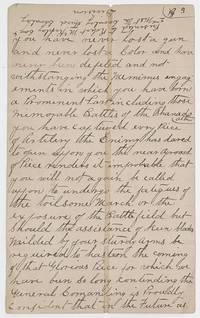 3
you have never lost a gun
and never lost a Color and have
never been defeted and not
withstanding the Numerous engag
ements in which you have born
a Prominent part including those
memorable Battles of the Shanado
you have Captured every Piece
of Artilery the Enimy has dared
to open upon you the near Aproach
of Piece renders it improbable that
you will not again be called
uppon to undergo the fatigues of
the toilsome March or the
exposure of the Battlefield but
should the assistance of
by your sturdy arms be
required to hasten the coming
of that Glorious Piece for which we
have bin so long contending the
General Comanding is Proudly
Confident that in the Future as